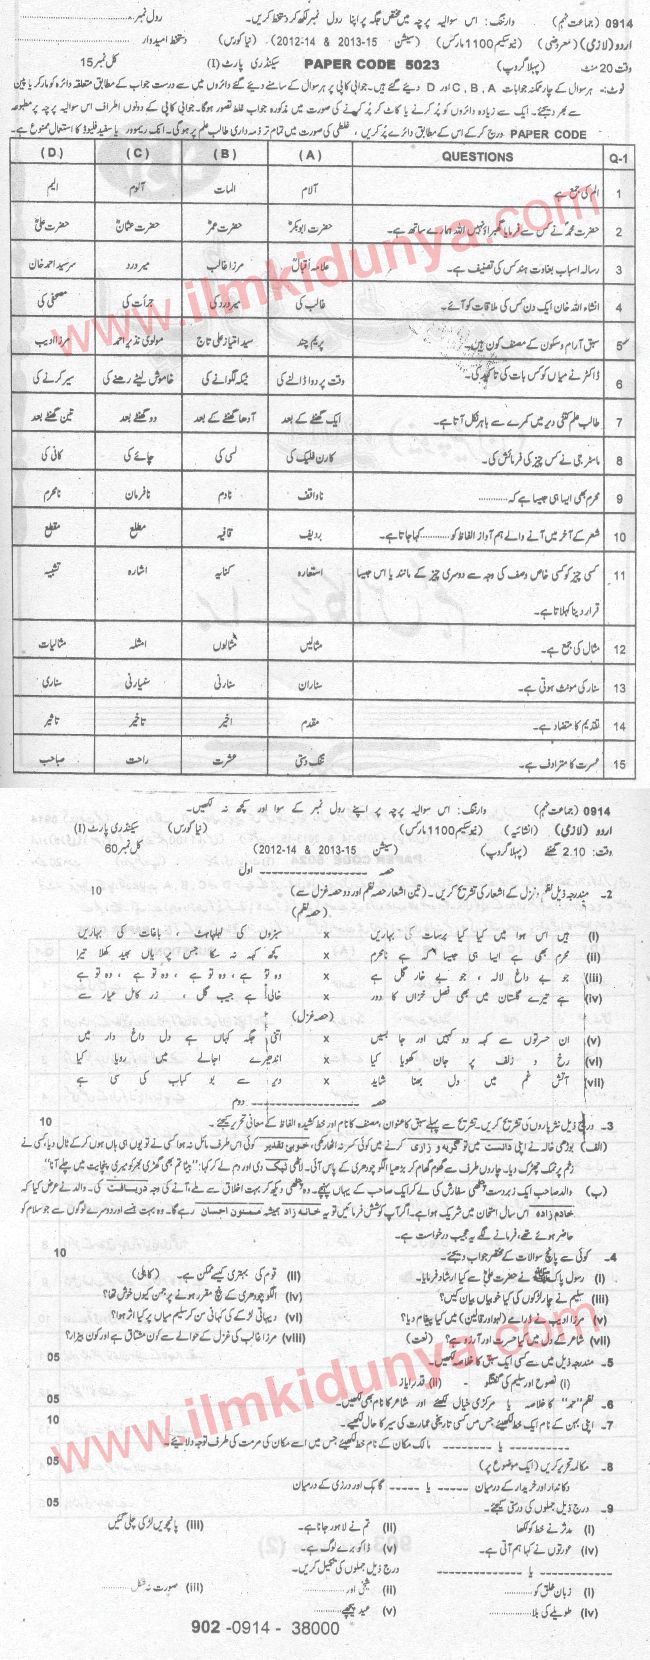 0914 (جماعت نہم) وارننگ: اس سوالیہ پرچہ میں مختص جگہ پر اپنا رول نمبر لکھ کر دستخط کریں۔ رول نمبر
اردو (لازمی) (معروضی) (نیو سکیم 1100 مارکس) (سیشن 2013-15 & 2012-14) (نیا کورس) دستخط امیدوار
وقت 20 منٹ (پہلا گروپ) PAPER CODE 5023 سیکنڈری پارٹ (I) کل نمبر 15
نوٹ:- ہر سوال کے چار ممکنہ جوابات A, B, C اور D دیئے گئے ہیں۔ جوابی کاپی پر ہر سوال کے سامنے دیئے گئے دائروں میں سے درست جواب کے مطابق متعلقہ دائرہ کو مارکر یا پین
سے بھر دیجئے۔ ایک سے زیادہ دائروں کو پُر کرنے یا کاٹ کر پُر کرنے کی صورت میں مذکورہ جواب غلط تصور ہوگا۔ جوابی کاپی کے دونوں اطراف اس سوالیہ پرچہ پر مطبوعہ
PAPER CODE درج کر کے اس کے مطابق دائرے پُر کریں، غلطی کی صورت میں تمام تر ذمہ داری طالب علم پر ہوگی۔ انک ریموور یا سفید فلیوڈ کا استعمال ممنوع ہے۔
Q-1 QUESTIONS (A) (B) (C) (D)
1 الم کی جمع ہے آلام المات آلوم ایم
2 حضرت محمدؐ نے کس سے فرمایا گھبراؤ نہیں اللہ ہمارے ساتھ ہے۔ حضرت ابوبکرؓ حضرت عمرؓ حضرت عثمانؓ حضرت علیؓ
3 رسالہ اسباب بغاوت ہند کس کی تصنیف ہے۔ علامہ اقبالؒ مرزا غالب میر درد سر سید احمد خان
4 انشاء اللہ خان ایک دن کس کی ملاقات کو آئے۔ غالب کی میر درد کی جرأت کی مصحفی کی
5 سبق آرام و سکون کے مصنف کون ہیں۔ پریم چند سید امتیاز علی تاج مولوی نذیر احمد مرزا ادیب
6 ڈاکٹر نے میاں کو کس بات کی تاکید کی۔ وقت پر دوا ڈالنے کی ٹیکہ لگوانے کی خاموش لیٹے رہنے کی سیر کرنے کی
7 طالب علم کتنی دیر میں کمرے سے باہر نکل آتا ہے۔ ایک گھنٹے کے بعد آدھا گھنٹے کے بعد دو گھنٹے بعد تین گھنٹے بعد
8 ماسٹر جی نے کس چیز کی فرمائش کی۔ کارن فلیک کی لسی کی چائے کی کافی کی
9 محرم بھی ایسا ہی جیسا ہے کہ ........ ناواقف نادم نافرمان نامحرم
10 شعر کے آخر میں آنے والے ہم آواز الفاظ کو ........ کہا جاتا ہے۔ ردیف قافیہ مطلع مقطع
11 کسی چیز کو کسی خاص وصف کی وجہ سے دوسری چیز کے مانند یا اس جیسا استعارہ کنایہ اشارہ تشبیہ
قرار دینا کہلاتا ہے۔
12 مثال کی جمع ہے۔ مثالیں مثالوں امثلہ مثالیات
13 سنار کی مونث ہوتی ہے۔ سناران سنارنی سنیارنی سناری
14 تقدیم کا متضاد ہے۔ مقدم اخیر تاخیر تاثیر
15 عسرت کا مترادف ہے۔ تنگ دستی عشرت راحت صاحب
0914 (جماعت نہم) وارننگ: اس سوالیہ پرچہ پر اپنے رول نمبر کے سوا اور کچھ نہ لکھیں۔
اردو (لازمی) (انشائیہ) (نیو سکیم 1100 مارکس) (سیشن 2013-15 & 2012-14) (نیا کورس) سیکنڈری پارٹ (I)
وقت: 2.10 گھنٹے (پہلا گروپ) کل نمبر 60
حصہ اول
2- مندرجہ ذیل نظم و غزل کے اشعار کی تشریح کریں۔ (تین اشعار حصہ نظم اور دو حصہ غزل سے) 10
(حصہ نظم)
(i) ہیں اس ہوا میں کیا کیا برسات کی بہاریں x سبزوں کی لہلہاہٹ، باغات کی بہاریں
(ii) محرم بھی ہے ایسا ہی جیسا کہ ہے نامحرم x کچھ کہہ نہ سکا جس پر یاں بھید کھلا تیرا
(iii) جو بے داغ لالہ، جو بے خار گل ہے x وہ تو ہے، وہ تو ہے، وہ تو ہے، وہ تو ہے
(iv) ہے تیرے گلستان میں بھی فصل خزاں کا دور x خالی ہے جیب گل، زر کامل عیار سے
(حصہ غزل)
(v) ان حسرتوں سے کہہ دو کہیں اور جا بسیں x اتنی جگہ کہاں ہے دل داغ دار میں
(vi) رخ و زلف پر جان کھویا کیا x اندھیرے اجالے میں رویا کیا
(vii) آتش غم میں دل بھنا شاید x دیر سے بو کباب کی سی ہے
حصہ دوم
3- درج ذیل نثر پاروں کی تشریح کریں۔ تشریح سے پہلے سبق کا عنوان، مصنف کا نام اور خط کشیدہ الفاظ کے معانی تحریر کیجئے۔ 10
(الف) بوڑھی خالہ نے اپنی دانست میں تو گریہ و زاری کرنے میں کوئی کسر نہ اٹھا رکھی، خوبیٔ تقدیر کوئی اس طرف مائل نہ ہوا کسی نے تو یوں ہی ہاں ہوں کر کے ٹال دیا، کسی نے
زخم پر نمک چھڑک دیا۔ چاروں طرف سے گھوم گھام کر بڑھیا الگو چودھری کے پاس آئی۔ لاٹھی ٹیک دی اور دم لے کر کہا: "بیٹا تم بھی گھڑی بھر کو میری پنچایت میں چلے آنا"
(ب) والد صاحب ایک زبردست چٹھی سفارش کی لے کر ایک صاحب کے یہاں پہنچے۔ وہ چٹھی دیکھ کر بہت اخلاق سے ملے، آنے کی وجہ دریافت کی۔ والد نے عرض کیا کہ
خادم زادہ اس سال امتحان میں شریک ہوا ہے۔ اگر آپ کوشش فرمائیں تو یہ خانہ زاد ہمیشہ ممنون احسان رہے گا۔ وہ بہت ہنسے اور دوسرے لوگوں سے جو سلام کو
حاضر ہوئے تھے، فرمانے لگے یہ عجیب درخواست ہے۔
4- کوئی سے پانچ سوالات کے مختصر جواب دیجئے۔ 10
(i) رسول پاکؐ نے حضرت علیؓ سے کیا ارشاد فرمایا۔ (ii) قوم کی بہتری کیسے ممکن ہے۔ (کاہلی)
(iii) سلیم نے چار لڑکوں کی کیا خوبیاں بیان کیں؟ (iv) الگو چودھری کے پنچ مقرر ہونے پر جمن کیوں خوش تھا؟
(v) مرزا ادیب نے ڈرامے (لہو اور قالین) میں کیا پیغام دیا؟ (vi) دیہاتی لڑکے کی کہانی سن کر سلیم میاں پر کیا اثر ہوا؟
(vii) شاعر کے دل میں کیا حسرت اور آرزو ہے؟ (نعت) (viii) مرزا غالب کی غزل کے حوالے سے کون مشتاق ہے اور کون بیزار؟
5- مندرجہ ذیل میں سے کسی ایک سبق کا خلاصہ لکھیں۔ 05
(i) نصوح اور سلیم کی گفتگو - (ii) قدر ایاز
6- نظم "حمد" کا خلاصہ یا مرکزی خیال لکھئے اور شاعر کا نام بھی لکھیں۔ 05
7- اپنی بہن کے نام ایک خط لکھئے جس میں کسی تاریخی عمارت کی سیر کا حال لکھیے۔ 10
یا مالک مکان کے نام خط لکھیئے جس میں اسے مکان کی مرمت کی طرف توجہ دلایئے۔
8- مکالمہ تحریر کریں (ایک موضوع پر) 05
دکاندار اور خریدار کے درمیان یا گاہک اور درزی کے درمیان
9- درج ذیل جملوں کی درستی کیجئے۔ 05
(i) مدثر نے خط کو لکھا (ii) تم نے لاہور جانا ہے۔ (iii) پانچویں لڑکی چلی گئیں
(iv) عورتوں نے کہا ہم آتی ہے۔ (v) ڈاکو برے لوگ ہے۔
یا درج ذیل جملوں کی تکمیل کریں۔
(i) زبان خلق کو (ii) شیخی اور (iii) صورت نہ شکل
(iv) طویلے کی بلا (v) عید پیچھے
902 -0914 - 38000
www.ilmkidunya.com
www.ilmkidunya.com